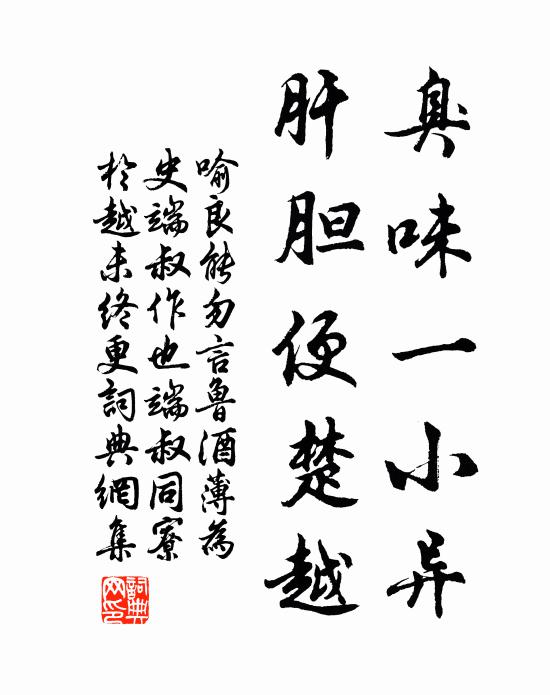 臭味一小异
肝胆便楚越
喻良能勿言魯酒薄為
史端叔作也端叔同寮
於越未終更詞典網集
詞典网印